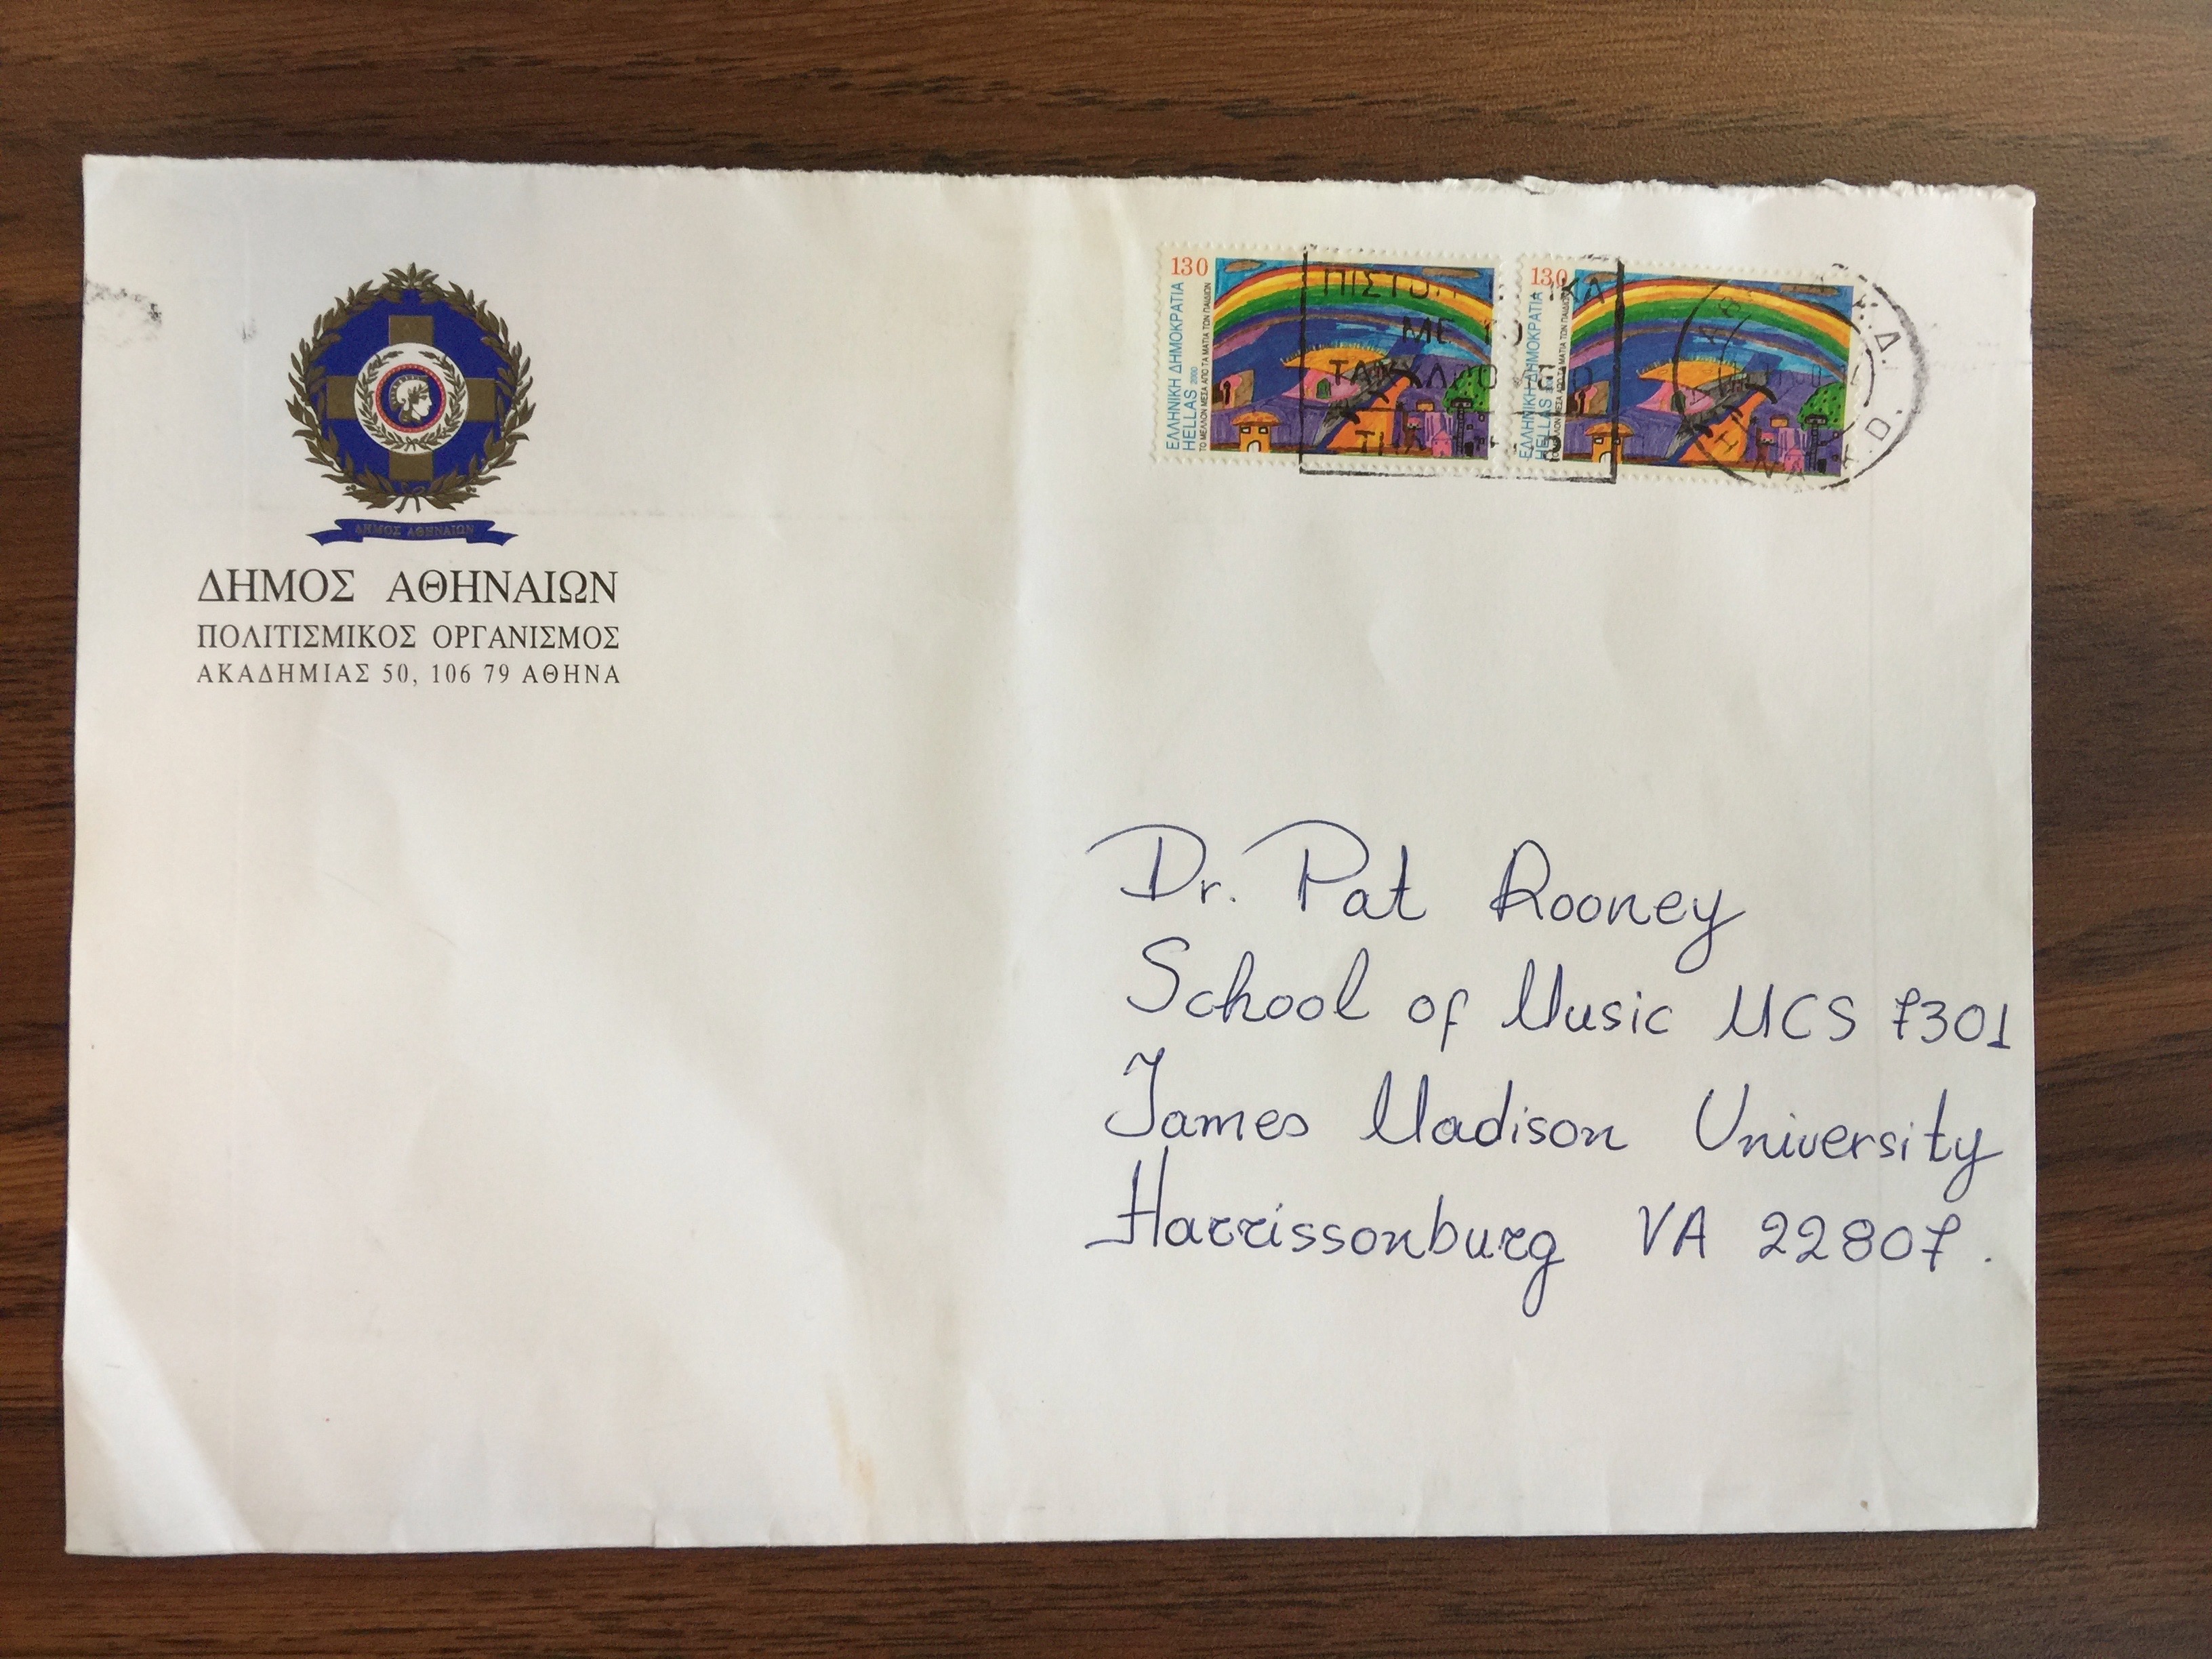 ΔΗΜΟΣ ΑΘΗΝΑΙΩΝ
ΔΗΜΟΣ ΑΘΗΝΑΙΩΝ
ΠΟΛΙΤΙΣΜΙΚΟΣ ΟΡΓΑΝΙΣΜΟΣ
ΑΚΑΔΗΜΙΑΣ 50, 106 79 ΑΘΗΝΑ
130
ΕΛΛΗΝΙΚΗ ΔΗΜΟΚΡΑΤΙΑ
HELLAS 2000
ΤΟ ΜΕΛΛΟΝ ΜΕΣΑ ΑΠΟ ΤΑ ΜΑΤΙΑ ΤΩΝ ΠΑΙΔΙΩΝ
130
ΕΛΛΗΝΙΚΗ ΔΗΜΟΚΡΑΤΙΑ
HELLAS
ΜΕΛΛΟΝ ΜΕΣΑ ΑΠΟ ΤΑ ΜΑΤΙΑ ΤΩΝ ΠΑΙΔΙΩΝ
ΜΕ
Dr. Pat Rooney
School of Music MCS 7301
James Madison University
Harrissonburg VA 22807.